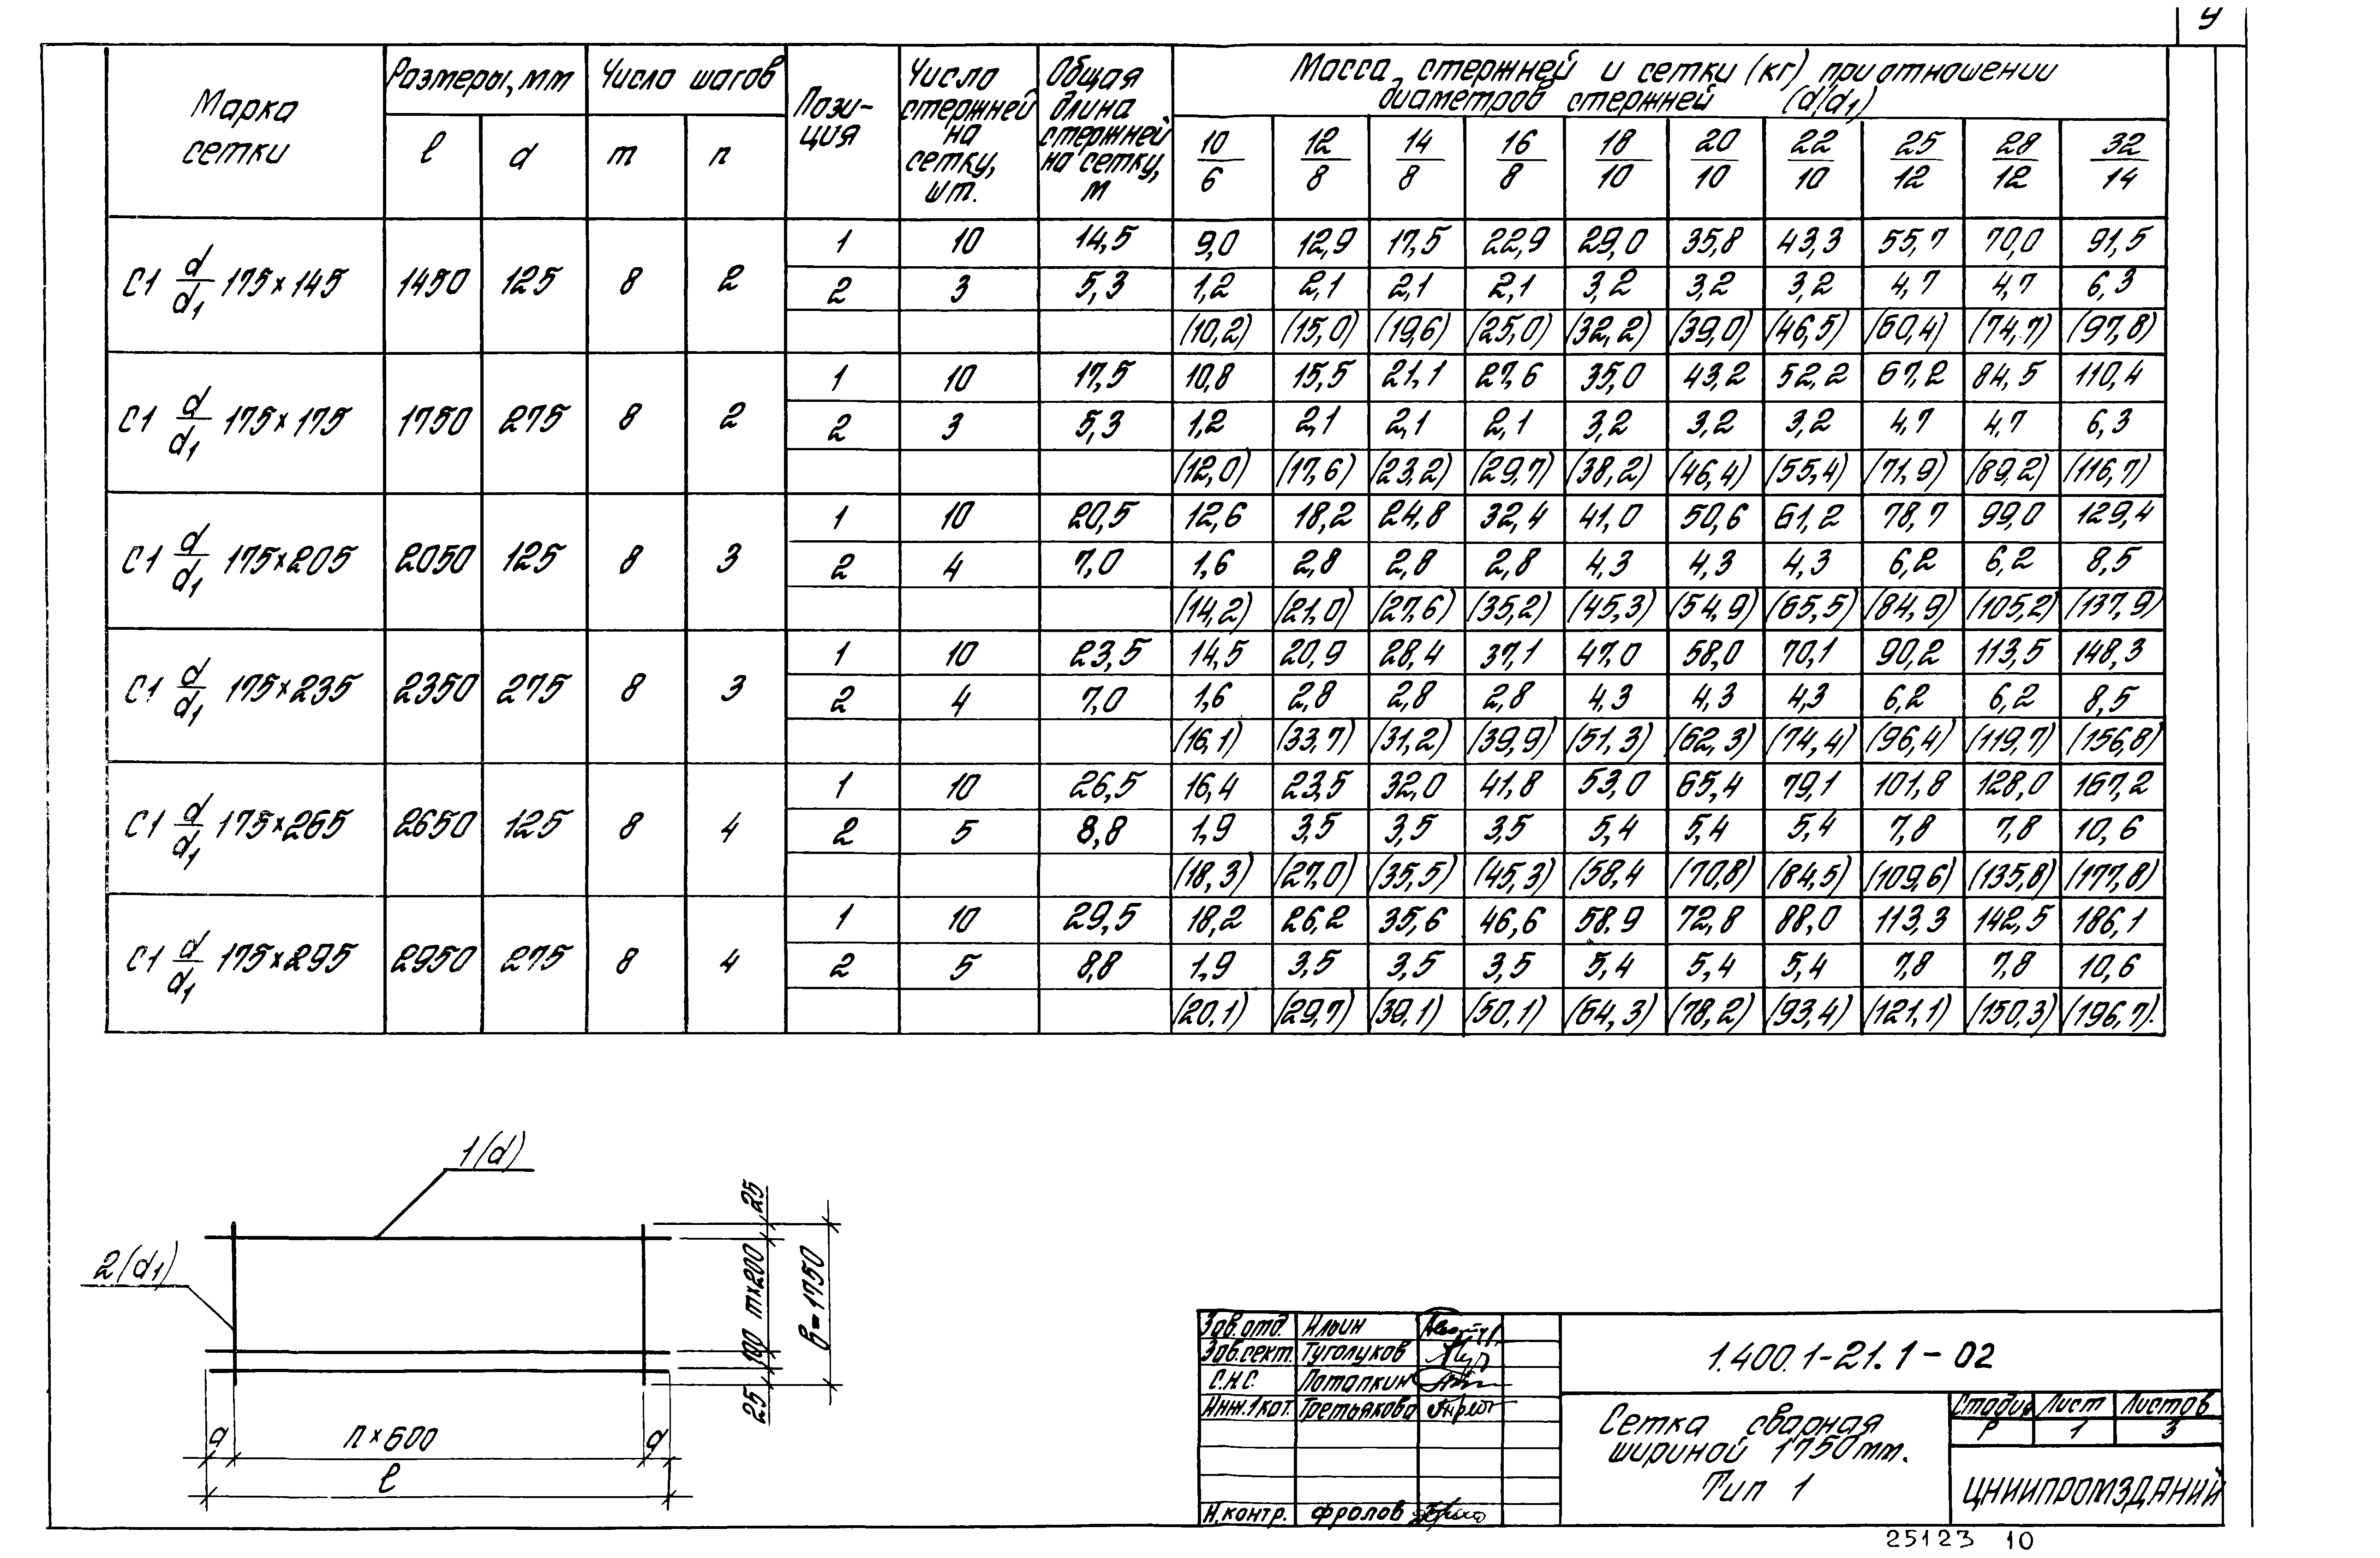 У
Марка сетки | Размеры, мм | Число шагов | Пози-ция | Число стержней на сетку, шт. | Общая длина стержней на сетку, м | Масса стержней и сетки (кг) при отношении диаметров стержней (d/d1)
l | a | m | n | 10/6 | 12/8 | 14/8 | 16/8 | 18/10 | 20/10 | 22/10 | 25/12 | 28/12 | 32/14
С1 d/d1 175×145 | 1450 | 125 | 8 | 2 | 1 | 10 | 14,5 | 9,0 | 12,9 | 17,5 | 22,9 | 29,0 | 35,8 | 43,3 | 55,7 | 70,0 | 91,5
2 | 3 | 5,3 | 1,2 | 2,1 | 2,1 | 2,1 | 3,2 | 3,2 | 3,2 | 4,7 | 4,7 | 6,3
(10,2) | (15,0) | (19,6) | (25,0) | (32,2) | (39,0) | (46,5) | (60,4) | (74,7) | (97,8)
С1 d/d1 175×175 | 1750 | 275 | 8 | 2 | 1 | 10 | 17,5 | 10,8 | 15,5 | 21,1 | 27,6 | 35,0 | 43,2 | 52,2 | 67,2 | 84,5 | 110,4
2 | 3 | 5,3 | 1,2 | 2,1 | 2,1 | 2,1 | 3,2 | 3,2 | 3,2 | 4,7 | 4,7 | 6,3
(12,0) | (17,6) | (23,2) | (29,7) | (38,2) | (46,4) | (55,4) | (71,9) | (89,2) | (116,7)
С1 d/d1 175×205 | 2050 | 125 | 8 | 3 | 1 | 10 | 20,5 | 12,6 | 18,2 | 24,8 | 32,4 | 41,0 | 50,6 | 61,2 | 78,7 | 99,0 | 129,4
2 | 4 | 7,0 | 1,6 | 2,8 | 2,8 | 2,8 | 4,3 | 4,3 | 4,3 | 6,2 | 6,2 | 8,5
(14,2) | (21,0) | (27,6) | (35,2) | (45,3) | (54,9) | (65,5) | (84,9) | (105,2) | (137,9)
С1 d/d1 175×235 | 2350 | 275 | 8 | 3 | 1 | 10 | 23,5 | 14,5 | 20,9 | 28,4 | 37,1 | 47,0 | 58,0 | 70,1 | 90,2 | 113,5 | 148,3
2 | 4 | 7,0 | 1,6 | 2,8 | 2,8 | 2,8 | 4,3 | 4,3 | 4,3 | 6,2 | 6,2 | 8,5
(16,1) | (33,7) | (31,2) | (39,9) | (51,3) | (62,3) | (74,4) | (96,4) | (119,7) | (156,8)
С1 d/d1 175×265 | 2650 | 125 | 8 | 4 | 1 | 10 | 26,5 | 16,4 | 23,5 | 32,0 | 41,8 | 53,0 | 65,4 | 79,1 | 101,8 | 128,0 | 167,2
2 | 5 | 8,8 | 1,9 | 3,5 | 3,5 | 3,5 | 5,4 | 5,4 | 5,4 | 7,8 | 7,8 | 10,6
(18,3) | (27,0) | (35,5) | (45,3) | (58,4 | (70,8) | (84,5) | (109,6) | (135,8) | (177,8)
С1 d/d1 175×295 | 2950 | 275 | 8 | 4 | 1 | 10 | 29,5 | 18,2 | 26,2 | 35,6 | 46,6 | 58,9 | 72,8 | 88,0 | 113,3 | 142,5 | 186,1
2 | 5 | 8,8 | 1,9 | 3,5 | 3,5 | 3,5 | 5,4 | 5,4 | 5,4 | 7,8 | 7,8 | 10,6
(20,1) | (29,7) | (39,1) | (50,1) | (64,3) | (78,2) | (93,4) | (121,1) | (150,3) | (196,7).
1(d)
2(d1)
25
m×200
100
25
b=1750
a
n×600
a
l
Зав.отд. Ильин
Зав.сект. Туголуков
С.Н.С. Потапкин
Инж.1кат. Третьякова
Н.контр. Фролов
1.400.1-21.1-02
Сетка сварная
шириной 1750мм.
Тип 1
Стадия Лист Листов
Р 1 3
ЦНИИПРОМЗДАНИЙ
25123 10